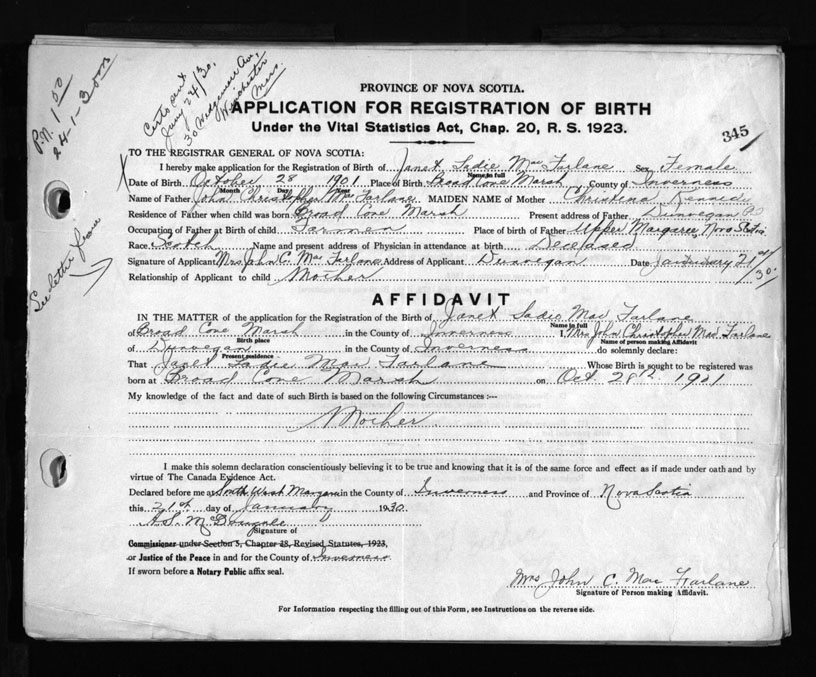 P.N. 1.00
24-1-30
Certs sent
Jany 24/30.
30 Wedgemere Ave,
Winchester
Mass.
See letter
345
PROVINCE OF NOVA SCOTIA.
APPLICATION FOR REGISTRATION OF BIRTH
Under the Vital Statistics Act, Chap. 20, R. S. 1923.
X TO THE REGISTRAR GENERAL OF NOVA SCOTIA:
I hereby make application for the Registration of Birth of Janet Sadie Mac Farlane Sex Female
Name in full
Date of Birth October 28 1901 Place of Birth Broad Cove Marsh County of Inverness
Month Day Year
Name of Father John Christopher Mac Farlane MAIDEN NAME of Mother Christene
Residence of Father when child was born Broad Cove Marsh Present address of Father Dunvegan
Occupation of Father at Birth of child Farmer Place of Birth of Father Upper Margaree, Nova Scotia
Race Scotch Name and present address of Physician in attendance at birth Deceased
Signature of Applicant Mrs John C. Mac Farlane Address of Applicant Dunvegan Date January 21st/30.
Relationship of Applicant to child Mother
AFFIDAVIT
IN THE MATTER of the application for the Registration of the Birth of Janet Sadie Mac Farlane
Name in full
Broad Cove Marsh in the County of Inverness I, Mrs John Christopher Mac Farlane
Birth place Name of person making Affidavit
of Dunvegan in the County of Inverness do solemnly declare:
Present residence
That Janet Sadie Mac Farlane Whose Birth is sought to be registered was
born at Broad Cove Marsh on Oct. 28th 1901
My knowledge of the fact and date of such Birth is based on the following Circumstances :—
Mother
I make this solemn declaration conscientiously believing it to be true and knowing that it is of the same force and effect as if made under oath and by
virtue of The Canada Evidence Act.
Declared before me at South West Margaree in the County of Inverness and Province of Nova Scotia
this 21st day of January 1930.
A.S. McDougall
Signature of
Commissioner under Section 3, Chapter 28, Revised Statutes, 1923,
or Justice of the Peace in and for the County of Inverness
If sworn before a Notary Public affix seal.
Mrs John C. Mac Farlane
Signature of Person making Affidavit.
For Information respecting the filling out of this Form, see Instructions on the reverse side.